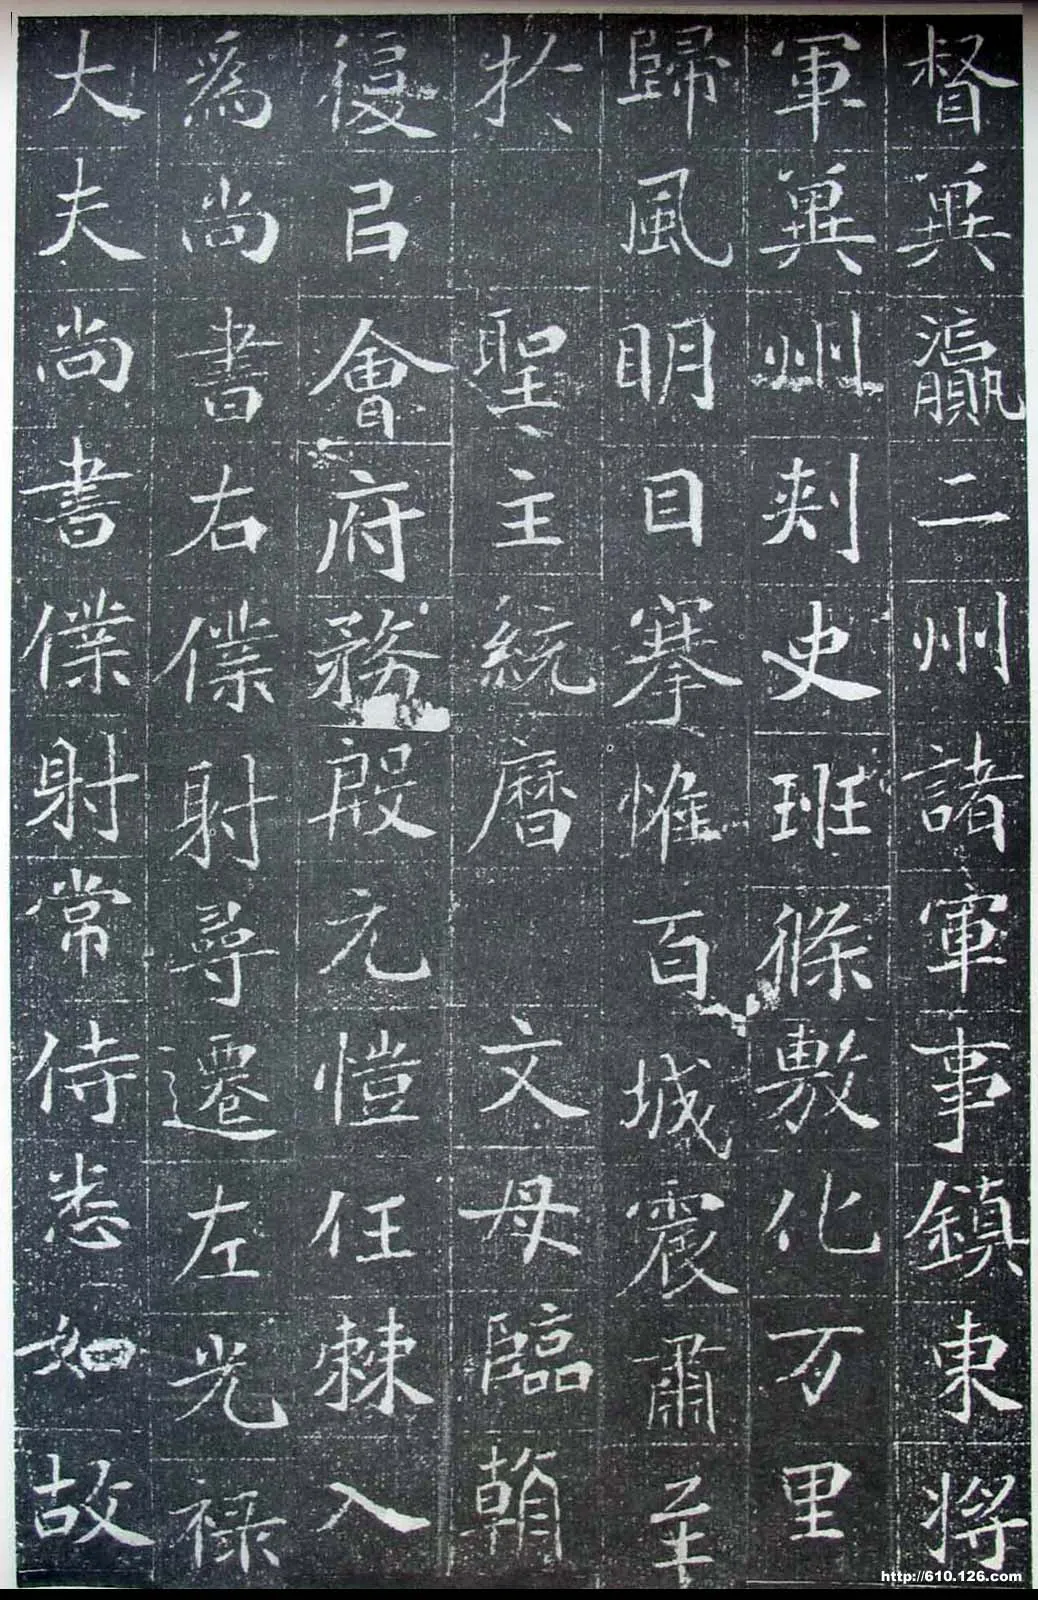 督冀瀛二州諸軍事鎮東將
軍冀州刺史班條敷化万里
歸風明目搴帷百城震肅至
於聖主統曆文母臨朝
復曰會府務殷元愷任棘入
為尚書右僕射尋遷左光祿
大夫尚書僕射常侍悉如故
http://610.126.com